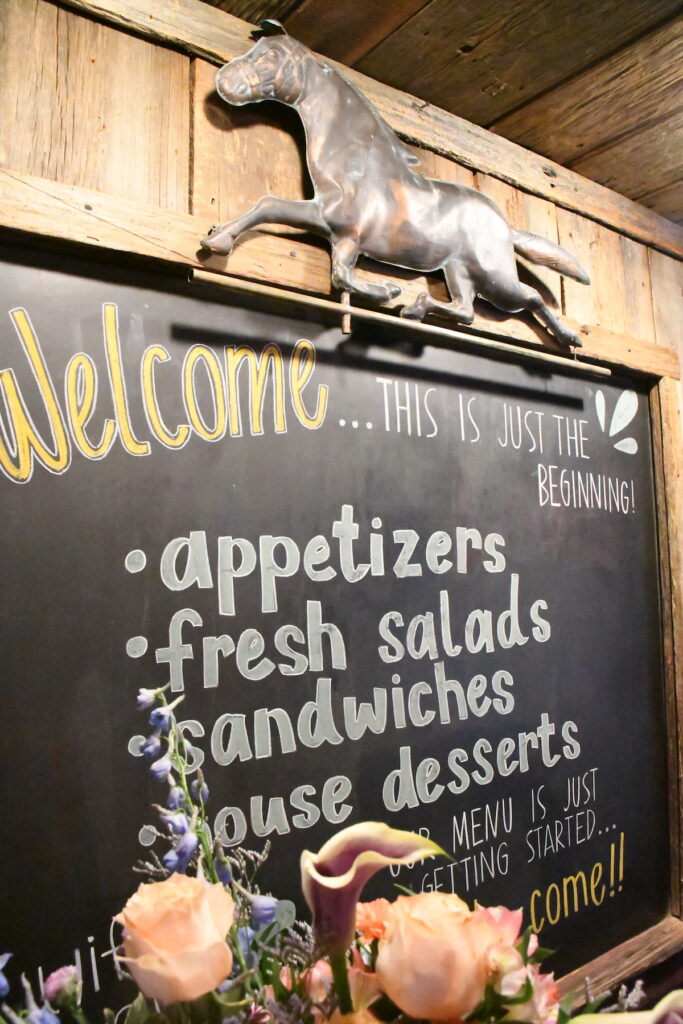 Welcome ...THIS IS JUST THE
BEGINNING!
• appetizers
• fresh salads
• sandwiches
• ouse desserts
UR MENU IS JUST
GETTING STARTED...
come!!